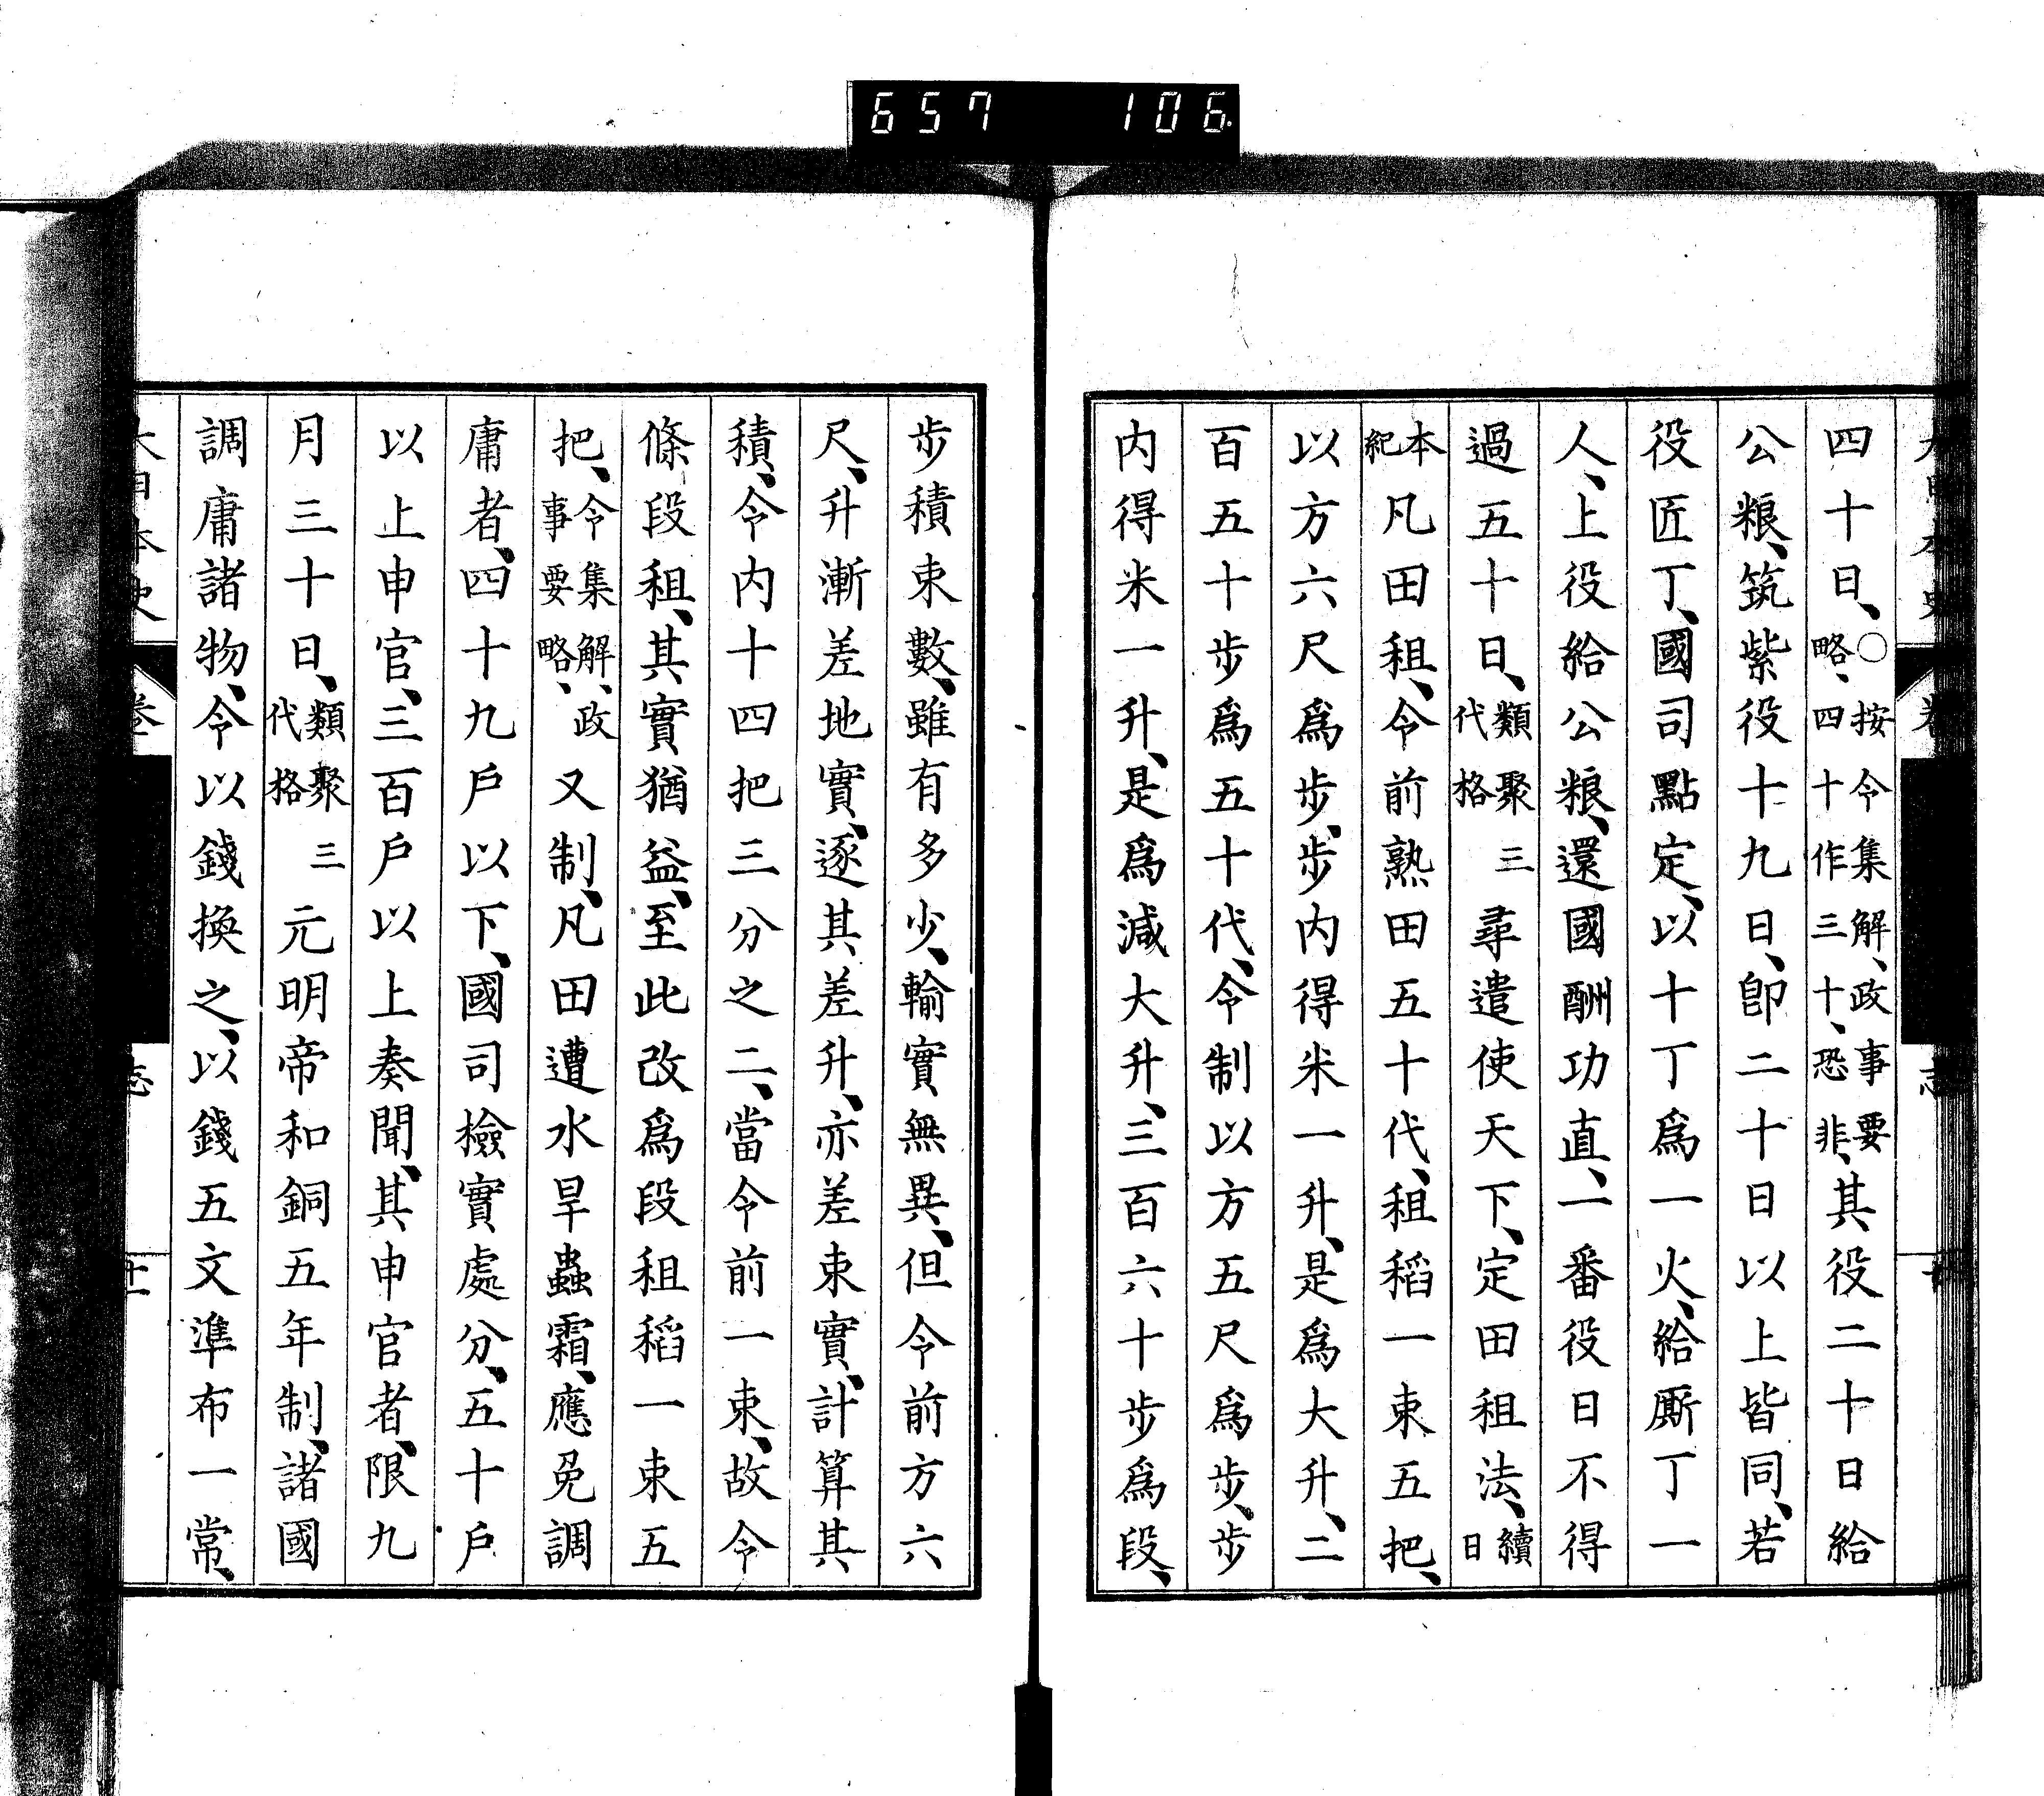 657 106
四十日、〇按令集解、政事要略、四十作三十、恐非、其役二十日給
公粮、筑紫役十九日、卽二十日以上皆同、若
役匠丁、國司點定、以十丁爲一火、給厮丁一
人、上役給公粮、還國酬功直、一番役日不得
過五十日、類聚三代格尋遣使天下、定田租法、續日
本紀凡田租、令前熟田五十代、租稻一束五把、
以方六尺爲步、步內得米一升、是爲大升、二
百五十步爲五十代、令制以方五尺爲步、步
内得米一升、是爲減大升、三百六十步爲段、
步積束數、雖有多少、輸實無異、但令前方六
尺、升漸差地實、逐其差升、亦差束實、計算其
積、令内十四把三分之二、當令前一束、故令
條段租、其實猶益、至此改爲段租稻一束五
把、令集解、政事要略、又制、凡田遭水旱蟲霜、應免調
庸者、四十九戶以下、國司檢實處分、五十戶
以上申官、三百戶以上奏聞、其申官者、限九
月三十日、類聚三代格元明帝和銅五年制、諸國
調庸諸物、令以錢換之、以錢五文準布一常、